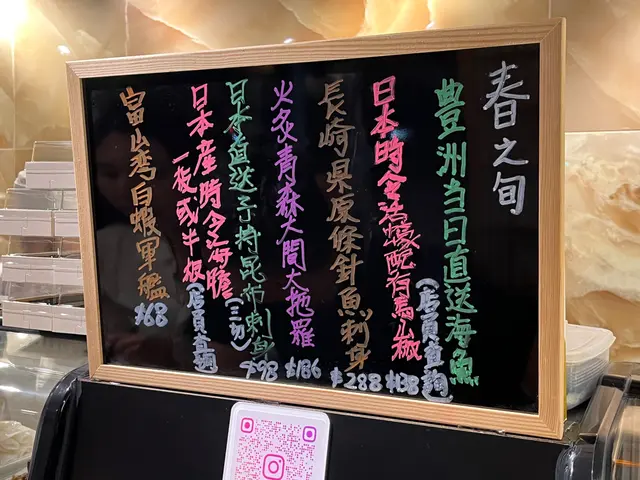 春之旬
豊洲当日直送海魚
(店員查詢)
日本時令活蠔配有馬山椒
$138
長崎県原條針魚刺身
$288
火炙青森大間大拖羅
$186
日本直送子持昆布刺身
(二切)
$98
日本產時令海膽
一板或半板
(店員查詢)
富山湾白蝦軍艦
$68